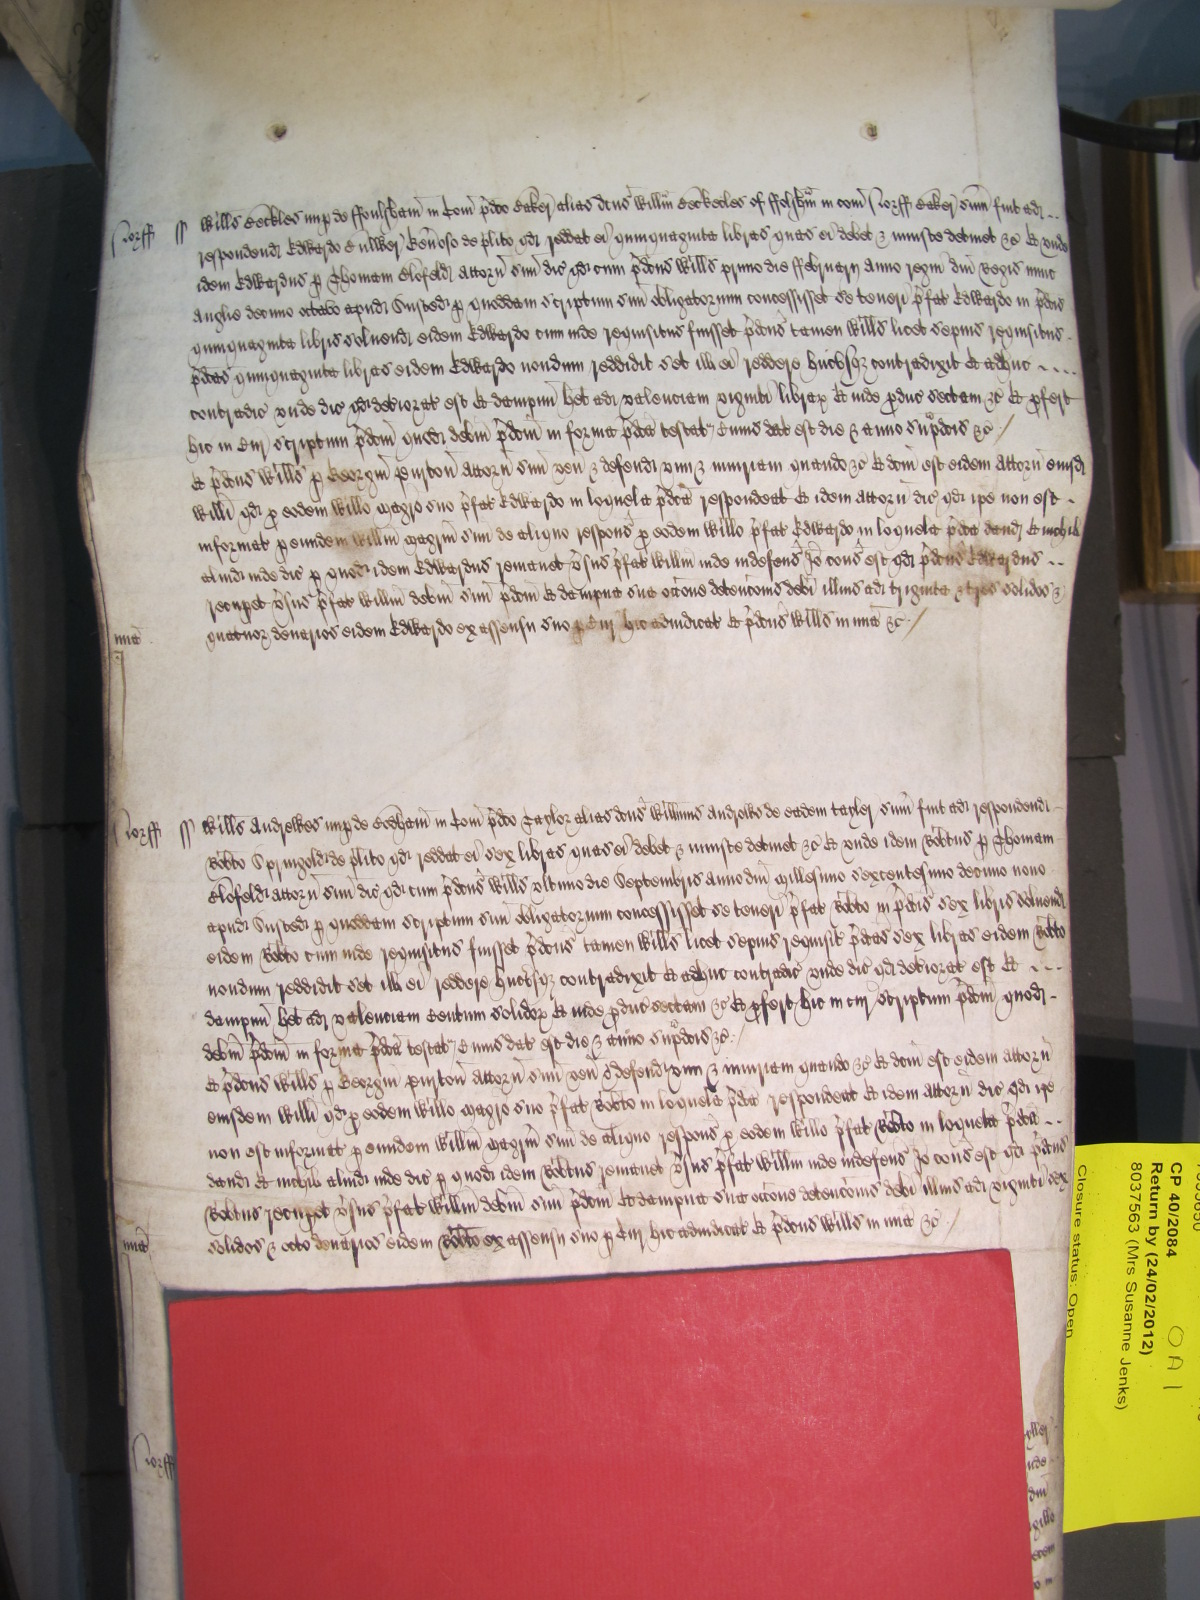 Norff ss Wills Beckles nup de ffoulsham in Com pdco Baker alias dcus Willm Beckles of ffolsham in com Norff Baker sum fuit ad
respondend Edwardo Bulwer Gen'oso de plito qd reddat ei quinquaginta libras quas ei debet & iniuste detinet &c Et unde
idem Edwardus p Thomam Elofeld attorn suu dic qd cum pdcus Wills primo die ffebruarij anno regni dni Regis nunc
Anglie decimo octavo apud Busted p quoddam scriptum suu obligatorium concessisset se teneri pfat Edwardo in pdcis
quinquaginta libris solvend eidem Edwardo cum inde requisitus fuisset pdcus tamen Wills licet sepius requisitus
pdcas quinquaginta libras eidem Edwardo nondum reddidit set ill ei reddere hucusq contradixit et adhuc
contradic unde dic qd detiorat est Et dampnu het ad valenciam viginti librar Et inde produc sectam &c Et profert
hic in Cur scriptum pdcm quod debm pdcm in forma pdca testat Cuius dat est die & anno supdcis &c
Et pdcus Wills p Georgiu Purton attorn suu ven & defend vim & iniuriam quando &c Et dcm est eidem attorn eiusd
Willi qd p eodem Willo magro suo pfat Edwardo in loquela pdca respondeat Et idem attorn dic qd ipe non est
informat p eundem Willm magrm suu de aliquo respons p eodem Willo pfat Edwardo in loquela pdca dand Et nichil
aliud inde dic p quod idem Edwardus remanet vsus pfat Willm inde indefens Io cons est qd pdcus Edwardus
recupet vsus pfat Willm debm suu pdcm Et dampna sua occone detencionis debi illius ad triginta & tres solidos &
mia quatuor denarios eidem Edwardo ex assensu suo p Cur hic adiudicat Et pdcus Wills in mia &c
Norff ss Wills Andrewes nup de Eccham in Com pdco Taylor alias dcus Willmus Andrewes de eadem tayler sum fuit ad respondend
Robto Springold de plito qd reddat ei sex libras quas ei debet & iniuste detinet &c Et unde idem Robtus p Thomam
Elofeld attorn suu dic qd cum pdcus Wills ultimo die Septembris anno dni millesimo sexcentesimo decimo nono
apud Busted p quoddam scriptum suu obligatorium concessisset se teneri pfat Robto in pdcis sex libris solvend
eidem Robto cum inde requisitus fuisset pdcus tamen Wills licet sepius requisit pdcas sex libras eidem Robto
nondum reddidit set ill ei reddere hucusq contradixit et adhuc contradic unde dic qd detiorat est Et
dampnu het ad valenciam Centum solidor Et inde produc sectam &c Et profert hic in cur scriptum pdcm quod
debm pdcm in forma pdca testat Cuius dat est die & anno supdcis &c
Et pdcus Wills p Georgiu Purton attorn suu ven & defend vim & iniuriam quando &c Et dcm est eidem attorn
eiusdem Willi qd p eodem Willo magro suo pfat Robto in loquela pdca respondeat Et idem attorn dic qd ipe
non est informat p eundem Willm magrm suu de aliquo respons p eodem Willo pfat Robto in loquela pdca
dand Et nichil aliud inde dic p quod idem Robtus remanet vsus pfat Willm inde indefens Io cons est qd pdcus
Robtus recupet vsus pfat Willm debm suu pdcm Et dampna sua occone detencionis debi illius ad viginti sex
mia solidos & octo denarios eidem Robto ex assensu suo p Cur hic adiudicat Et pdcus Wills in mia &c
Norff
CP 40/2084
Return by (24/02/2012)
8037563 (Mrs Susanne Jenks)
Closure status: Open